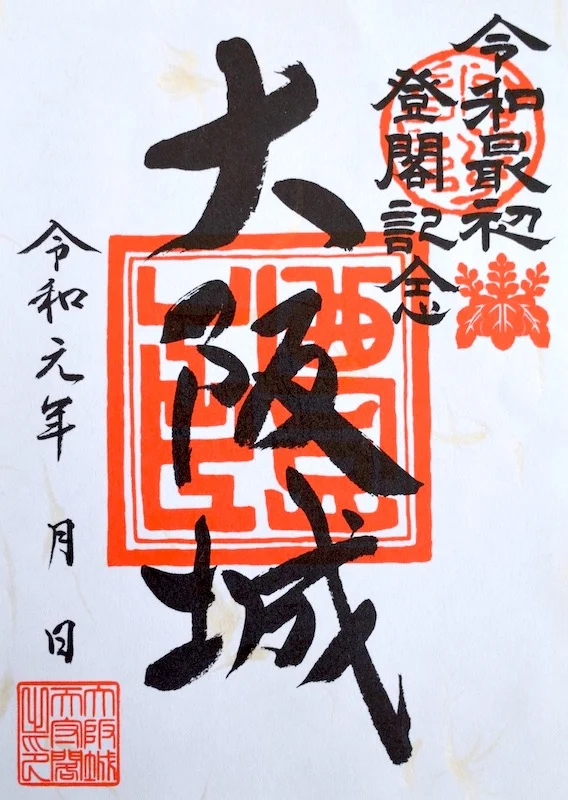 令和最初
登閣記念
大阪城
令和元年　月　日
大阪城
天守閣
之印